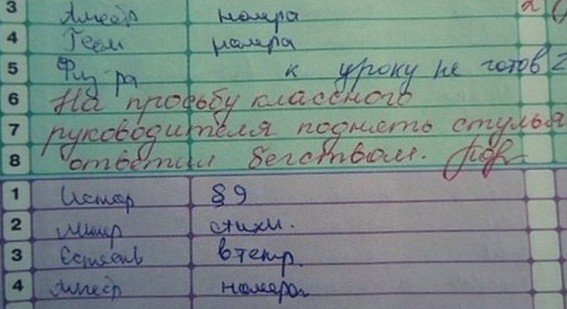 3 Алгебр номера
4 Геом номера
5 Физ ра к уроку не готов 2
6 На просьбу классного
7 руководителя поднять стулья
8 ответил бегством.
1 Истор § 9
2 Литер стихи.
3 Естеств в тетр.
4 Алгебр номера